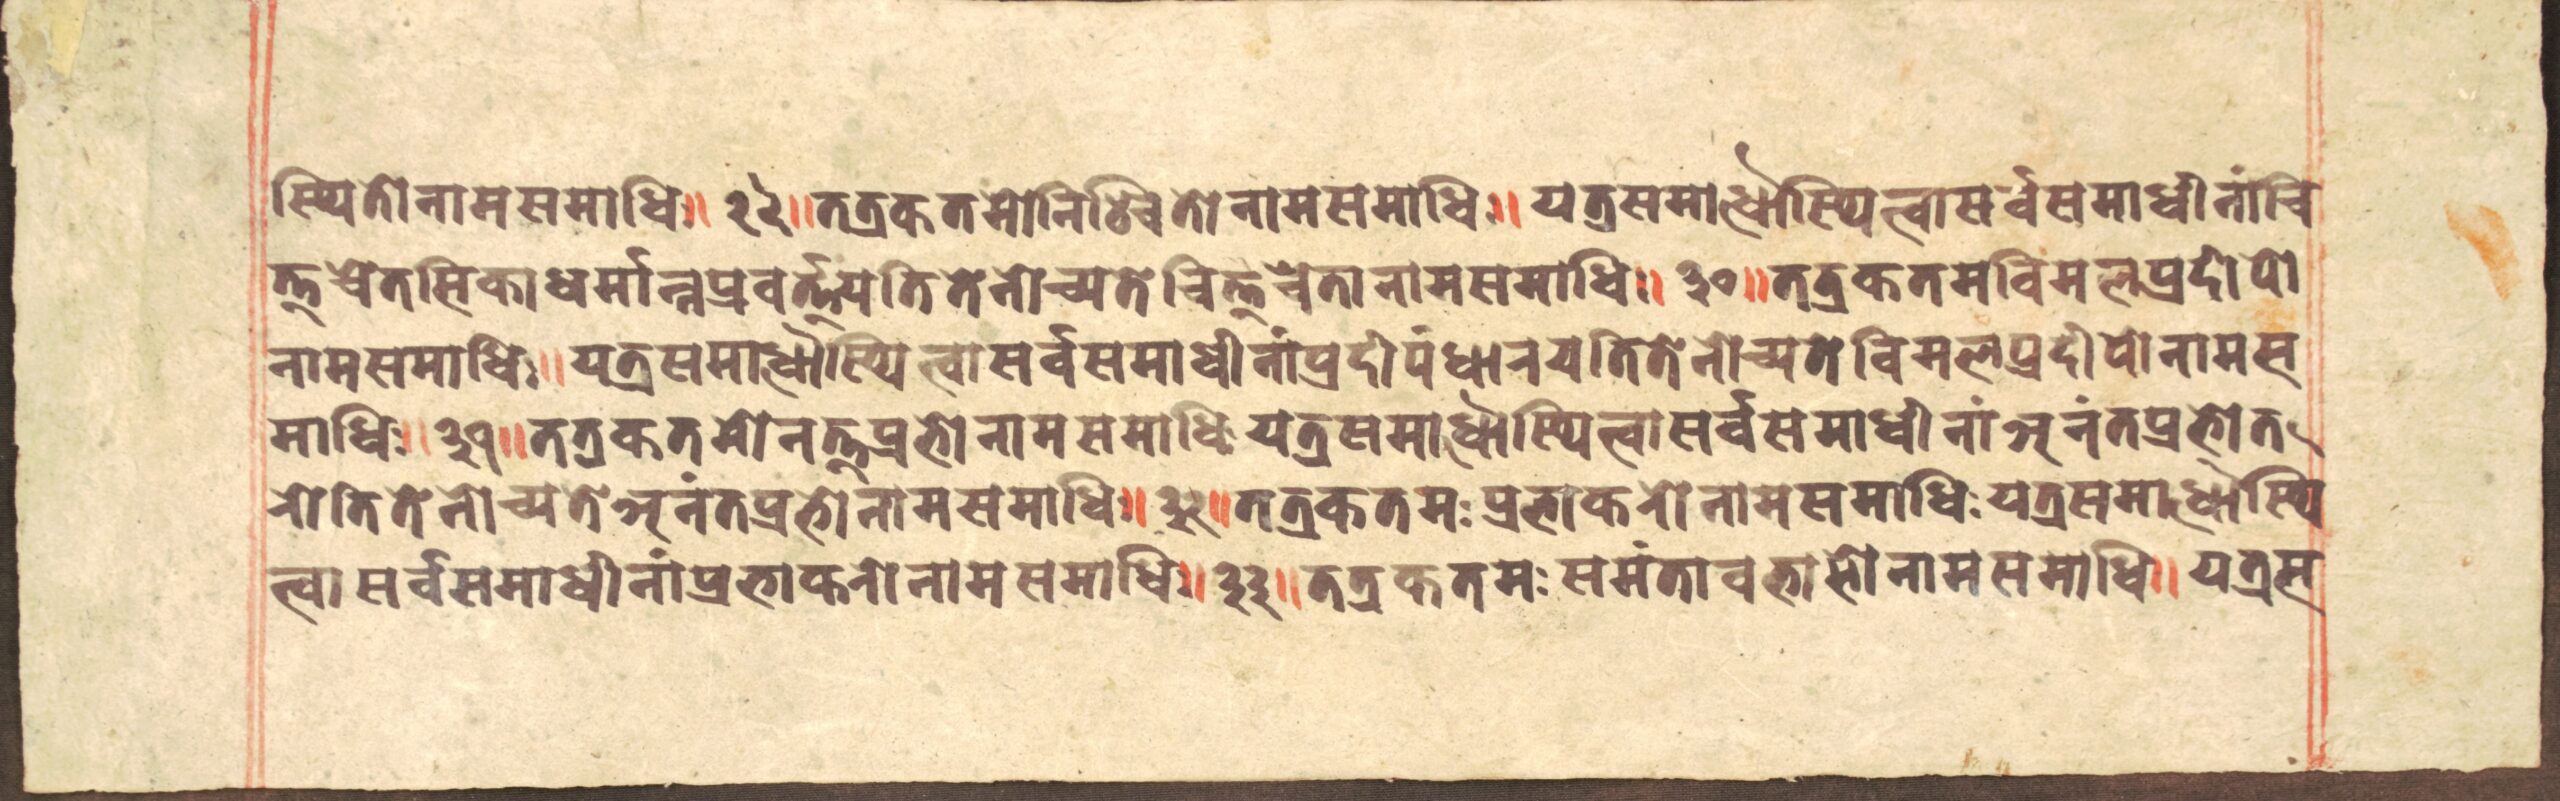 स्थितोनामसमाधिः॥ २९॥तत्रकतमोनिश्चितोनामसमाधिः॥ यत्रसमाधौस्थित्वासर्वसमाधीनांचि
त्तचैतसिकाधर्मान्नप्रवर्त्तयतितेनोच्यतेचित्तचेतानामसमाधिः॥ ३०॥तत्रकतमविमलप्रदीपो
नामसमाधिः॥ यत्रसमाधौस्थित्वासर्वसमाधीनांप्रदीपंधारयतितेनोच्यतेविमलप्रदीपोनामस
माधिः॥ ३१॥तत्रकतमोनत्तप्रभोनामसमाधिः यत्रसमाधौस्थित्वासर्वसमाधीनांअनंतप्रभोत
रोतितेनोच्यतेअनंतप्रभोनामसमाधिः॥ ३२॥तत्रकतमः प्रभाकरोनामसमाधिः यत्रसमाधौस्थि
त्वासर्वसमाधीनांप्रभाकरोनामसमाधिः॥ ३३॥तत्रकतमः समंतावभाभोनामसमाधि॥ यत्रस